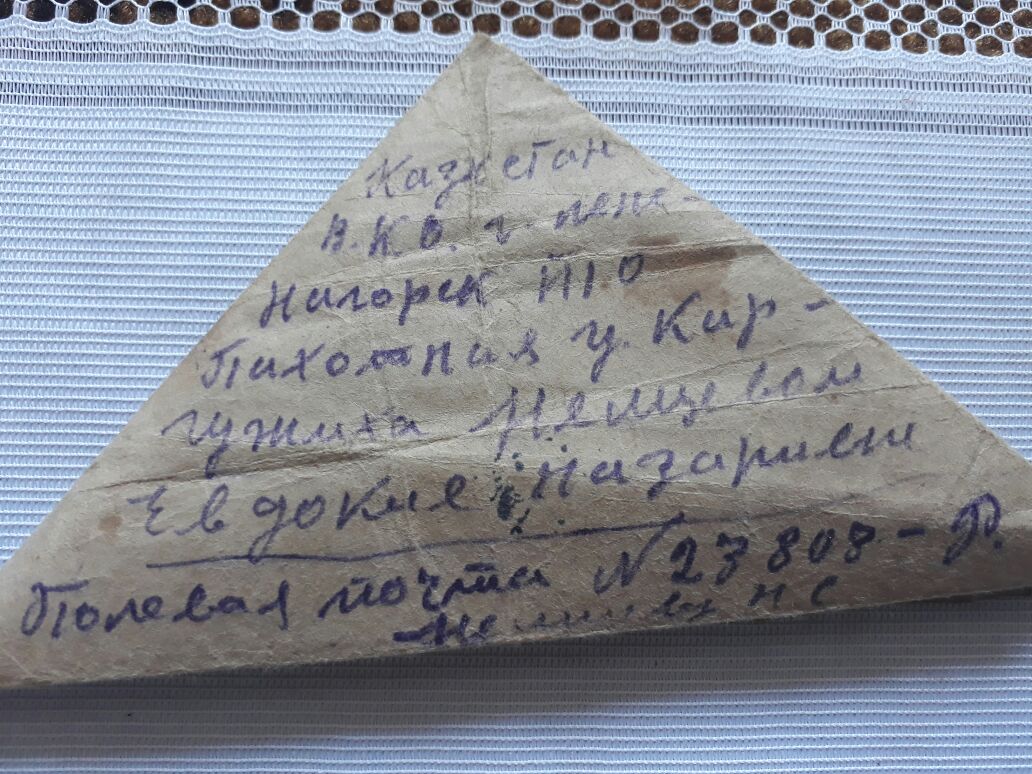 Казхстан
В.К.О. г. лени-
Нагорск П10
Пихотная у. Кир-
гужиха Немцевой
Евдокие Назарьевне
Полевая почта N 27808-Р.
Немцев Н С